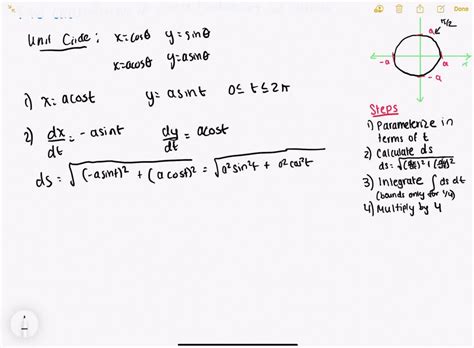 Unit Circle: x=cosθ y=sinθ
x=acosθ y=asinθ
1) x= acost y= asint 0≤t≤2π
2) dx/dt = -asint dy/dt = acost
ds= √((-asint)² + (acost)²) = √(a²sin²t + a²cos²t)
π/2
a
-a a
-a
Steps
1) Parameterize in
terms of t
2) Calculate ds
ds= √((dx/dt)² + (dy/dt)²)
3) Integrate ∫ ds dt
(bounds only for 1/4)
4) Multiply by 4